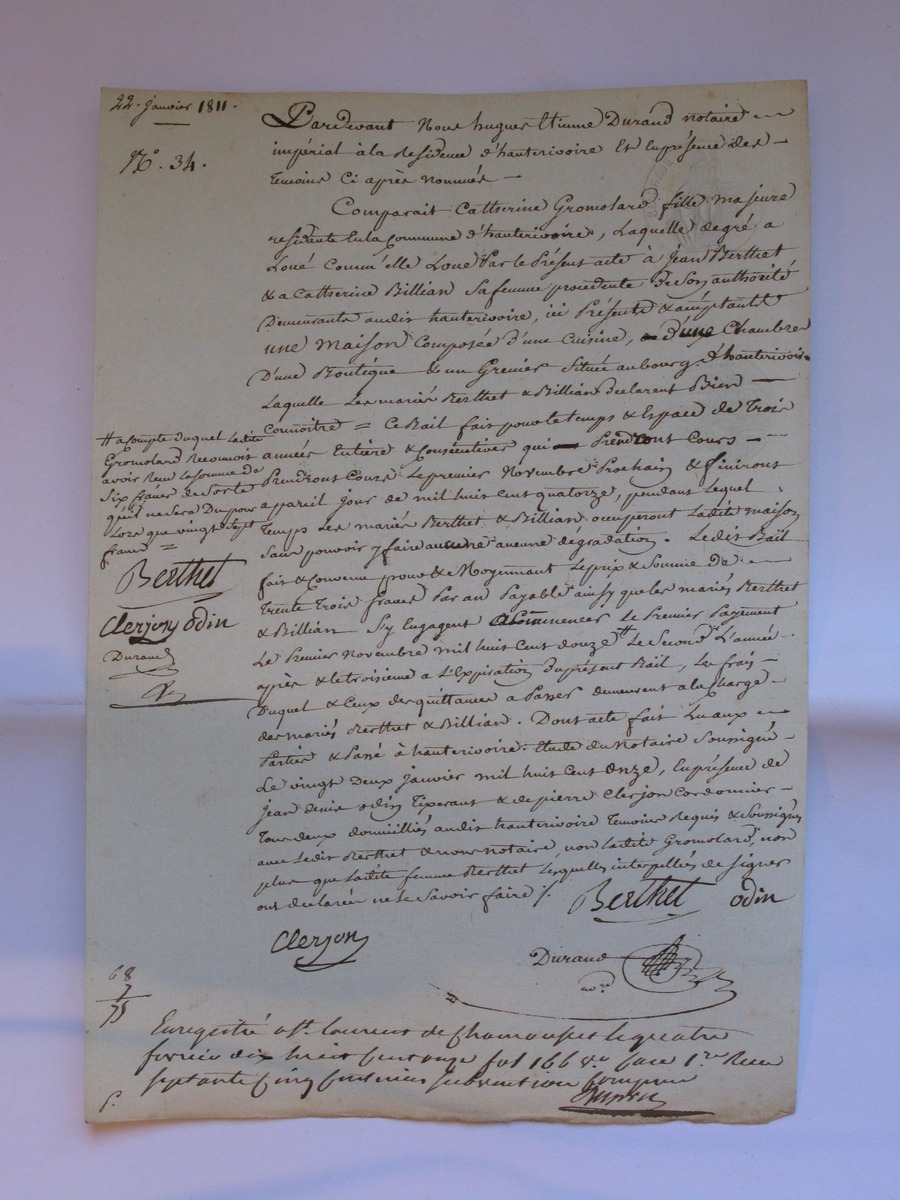 22. janvier 1811.
N.° 34.
Pardevant Nous hugues Etienne Durand notaire
impérial à la Residence d'hauterivoire Et Enprésence des
Temoins Ci après Nommés
Comparait Catherine Gromolard fille majeure
residente Enla Commune d'hauterivoire, Laquelle degré a
Loué Comm'elle Loue Par le Présent acte à Jean Berthet
& a Catherine Billian Safemme procedente de Son authorité
Demeurants audit hauterivoire, ici Présents & acceptants
une maison Composée d'une Cuisine, d'une Chambre
D'une Boutique & un Grenier Située aubourg d'hauterivoire
Laquelle Les mariés Berthet & Billian Declarent Bien
Connoître = Ce Bail fait pour le temps & Espace de Trois
années Entière & Consécutives qui Prendront Cours
Prendront Cours Le premier Novembre Prochain & finiront
a pareil Jour de mil huit Cent quatorze, pendant Lequel
Temps Les mariés Berthet & Billian occuperont Ladite maison
Sans pouvoir y faire aucune aucune dégradation. Ledit Bail
fait & Convenu pour & Moyennant Le prix & Somme de
Trente Trois francs Par an Payable ainsy que les mariés Berthet
& Billian Sy Engagent a Commencer Le Premier Payement
Le Premier Novembre mil huit Cent douze # Le Second L'année
après & le troisieme a L'Expiration Duprésent Bail, Les frais
Duquel & Ceux des quittances a Passer demeurent a la Charge
des mariés Berthet & Billian. Dont acte fait Lu aux
Parties & Passé à hauterivoire Etude du Notaire Soussigné
Le vingt Deux janvier mil huit Cent Onze, Enprésence de
Jean denis odin Tixerant & de pierre Clerjon Cordonnier
Tous deux domiciliés audit hauterivoire Temoins Requis & Soussignés
avec Ledit Berthet & nous notaire, non Ladite Gromolard, non
plus que Ladite femme Berthet Lesquelles interpellés de Signer
ont déclarées ne Le Savoir faire /.
Berthet odin
Clerjon
Durand
no.re
# a Compte Duquel Ladite
Gromolard Reconnoit
avoir Reçu La Somme de
Six francs de Sorte
qu'il ne Sera Du pour
Lors que vingt Sept
francs =
Berthet
Clerjon odin
Durand
68
7
75
Enregistré a St. laurent de Chamousset le quatre
fevrier dix huit cent onze fol 166 V.o Case 1.re Recu
septante cinq centimes subvention comprise